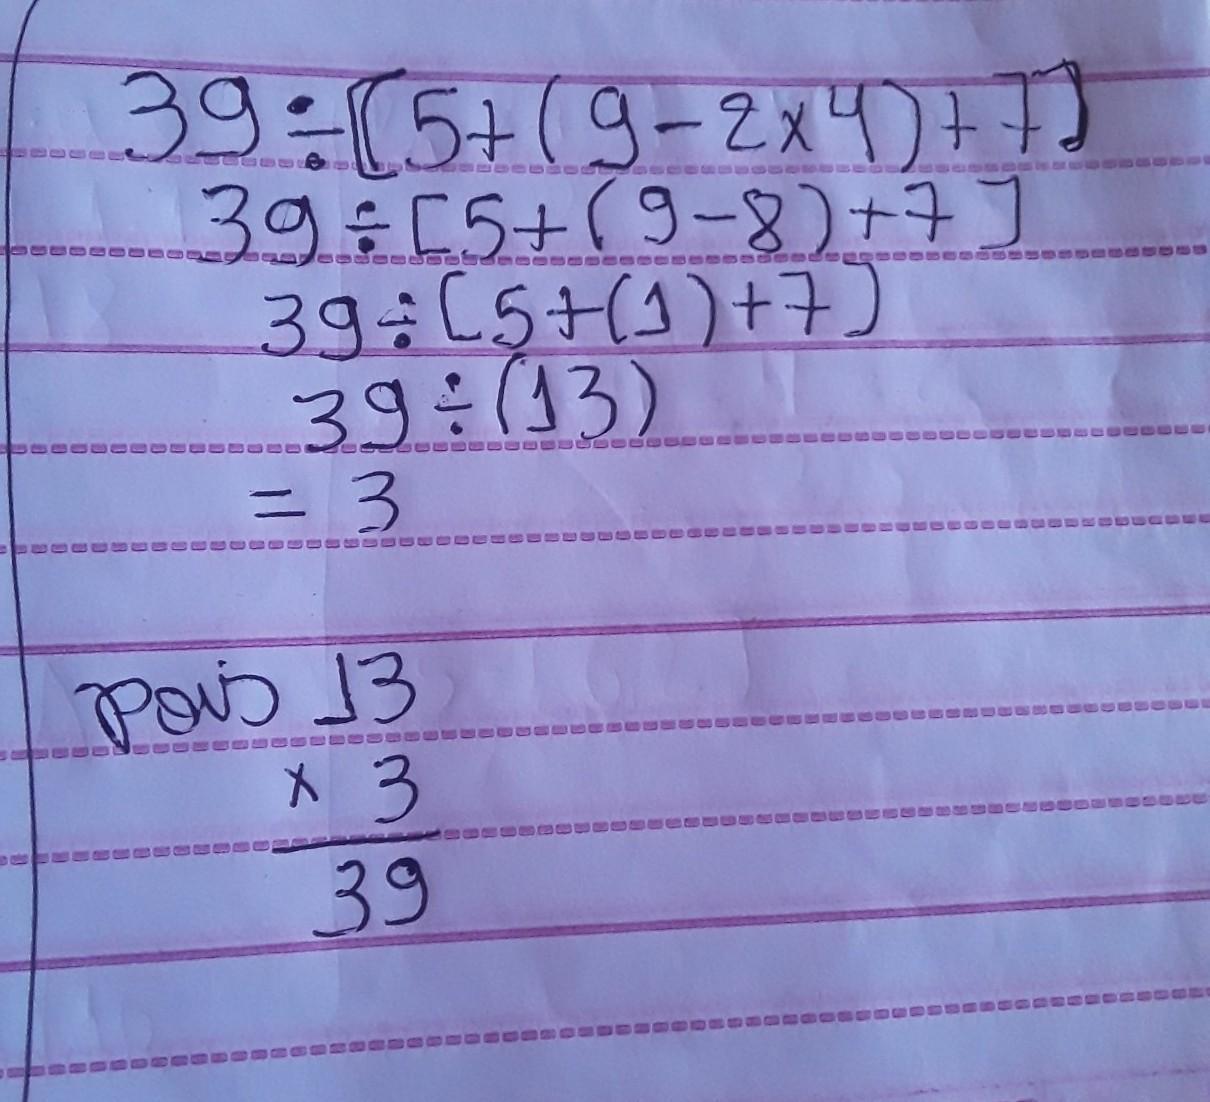 39÷[5+(9-2×4)+7]
39÷[5+(9-8)+7]
39÷[5+(1)+7]
39÷(13)
= 3
pois 13
× 3
39